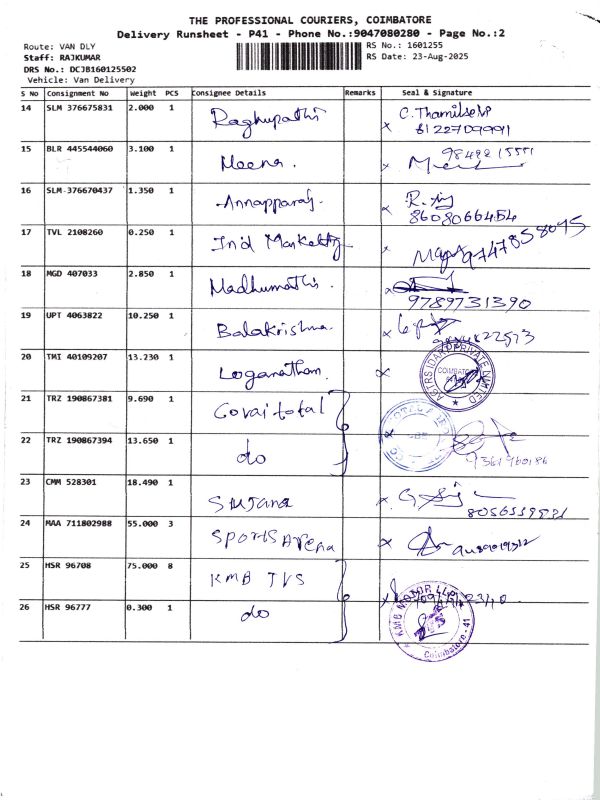 THE PROFESSIONAL COURIERS, COIMBATORE
Delivery Runsheet - P41 - Phone No.:9047080280 - Page No.:2
Route: VAN DLY
RS No.: 1601255
Staff: RAJKUMAR
RS Date: 23-Aug-2025
DRS No.: DCJB160125502
Vehicle: Van Delivery
S No Consignment No Weight PCS Consignee Details Remarks Seal & Signature
14 SLM 376675831 2.000 1 Raghupathi
15 BLR 445544060 3.100 1 Meena.
16 SLM 376670437 1.350 1 Annapparaj.
8608066454
17 TVL 2108260 0.250 1 Ind Marketing
9747858095
18 MGD 407033 2.850 1 Madhumathi.
9789731390
19 UPT 4063822 10.250 1 Balakrishna.
20 TMI 40109207 13.230 1 Loganathan.
COIMBATORE
PRIVATE LIMITED
21 TRZ 190867381 9.690 1 Covai total
22 TRZ 190867394 13.650 1 do
23 CMM 528301 18.490 1 Sujana
24 MAA 711802988 55.000 3 Sports Arena
25 HSR 96708 75.000 8 KMB TVS
26 HSR 96777 0.300 1 do
KMB MOTOR LLP
Coimbatore - 41